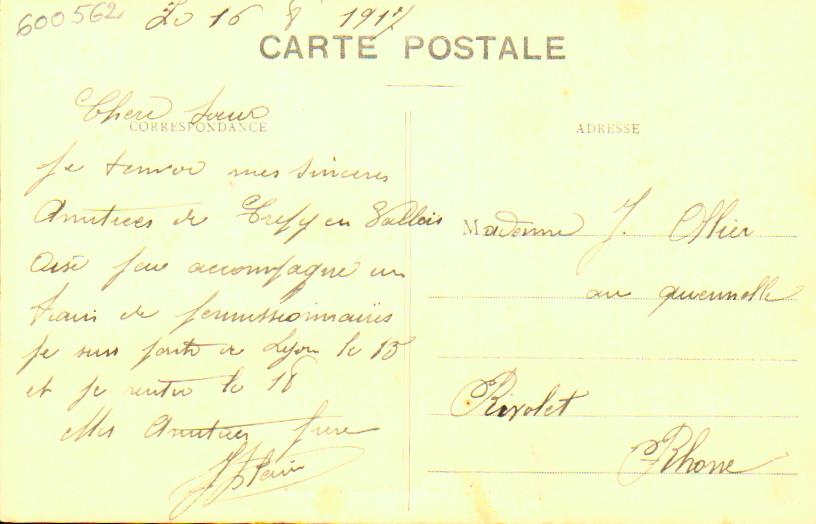 600562 Le 16 8 1917
CARTE POSTALE
Chere soeur
CORRESPONDANCE
ADRESSE
Je tenvoi mes sinceres
Amitiees de Crepy en Vallois
Madame J. Ollier
Oise jai accompagne un
au quennelle
train de permissionnaires
je suis partit de Lyon le 15
et je rentre le 18
Rivolet
Mes Amitiees frere
Rhone